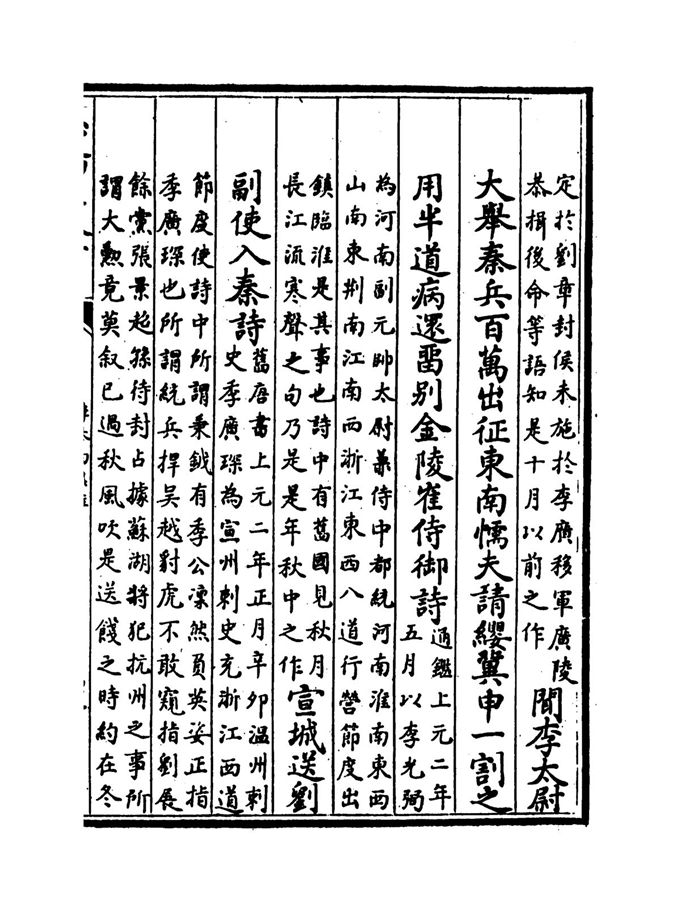 定於劉章封侯未施於李廣移軍廣陵
恭揖後命等語知是十月以前之作
聞李太尉
大舉秦兵百萬出征東南懦夫請纓冀申一割之
用半道病還留别金陵崔侍御詩
通鑑上元二年
五月以李光弼
為河南副元帥太尉兼侍中都統河南淮南東西
山南東荆南江南西浙江東西八道行營節度出
鎮臨淮是其事也詩中有舊國見秋月
長江流寒聲之句乃是是年秋中之作
宣城送劉
副使入秦詩
舊唐書上元二年正月辛卯温州刺
史季廣琛為宣州刺史充浙江西道
節度使詩中所謂秉鉞有季公凛然負英姿正指
季廣琛也所謂統兵捍吳越豺虎不敢窺指劉展
餘黨張景超孫待封占據蘇湖將犯杭州之事所
謂大勲竟莫叙已過秋風吹是送餞之時約在冬